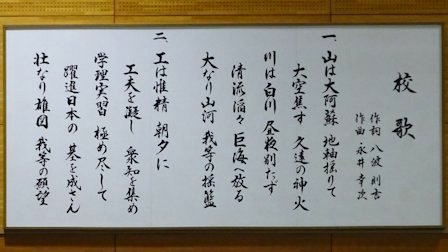 校歌
作詞 八波則吉
作曲 永井幸次
一、山は大阿蘇 地軸揺りて
大空焦す 久遠の神火
川は白川 昼夜別たず
清流滔々 巨海へ放る
大なり山河 我等の揺籃
二、工は惟精 朝夕に
工夫を凝し 衆知を集め
学理実習 極め尽して
躍進日本の 基を成さん
壮なり雄図 我等の願望